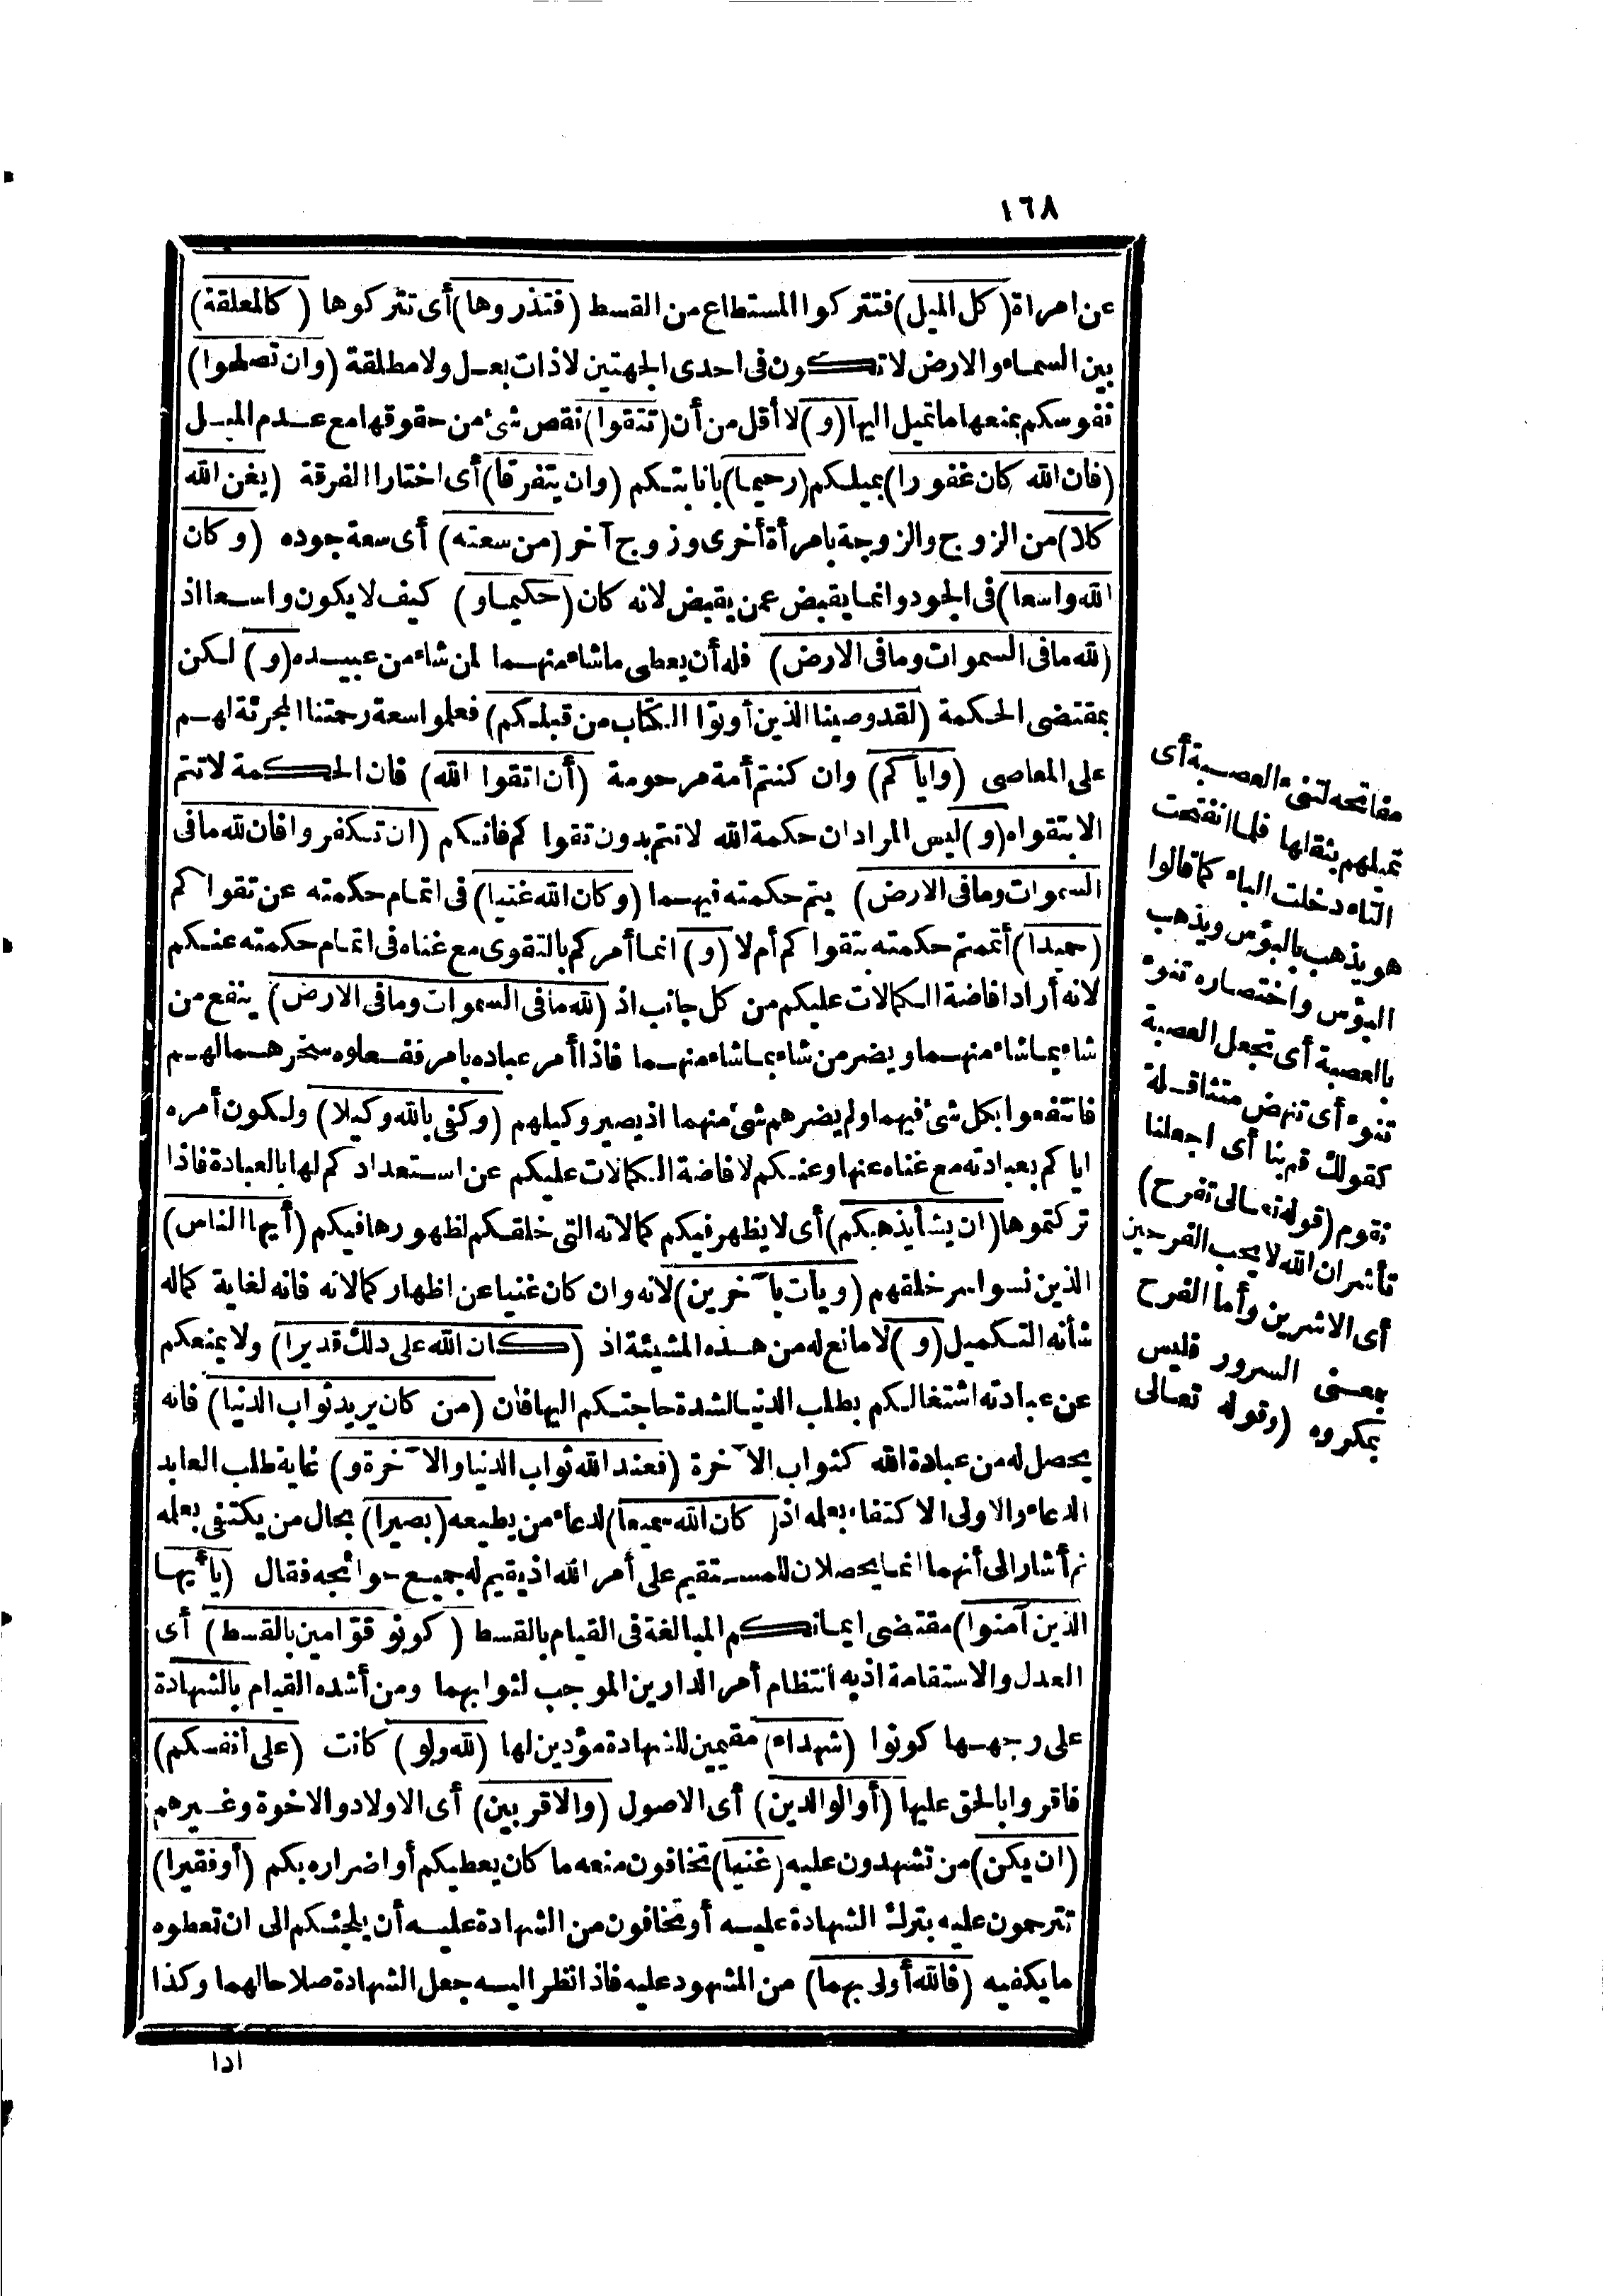 ١٦٨
عن امراة (كل الميل) فتتركوا المستطاع من القسط (فتذروها) أى تتركوها (كالمعلقة)
بين السماء والارض لا تكون فى احدى الجهتين لا ذات بعل ولا مطلقة (وان تصلحوا)
نفوسكم بمنعها ما تميل اليها (و) لا أقل من أن (تتقوا) نقص شئ من حقوقها مع عدم الميل
(فان الله كان غفورا) بميلكم (رحيما) بانابتكم (وان يتفرقا) أى اختارا الفرقة (يغن الله
كلا) من الزوج والزوجة بامرأة أخرى وزوج آخر (من سعته) أى سعة جوده (وكان
الله واسعا) فى الجود وانما يقبض عمن يقبض لانه كان (حكيما و) كيف لا يكون واسعا اذ
(لله مافى السموات ومافى الارض) فله أن يعطى ماشاء منهما لمن شاء من عبيده (و) لكن
بمقتضى الحكمة (لقد وصينا الذين أوتوا الكتاب من قبلكم) فعلموا سعة رحمتنا المجرئة لهم
على المعاصى (واياكم) وان كنتم أمة مرحومة (أن اتقوا الله) فان الحكمة لا تتم
الا بتقواه (و) ليس المراد ان حكمة الله لا تتم بدون تقواكم فانكم (ان تكفروا فان لله مافى
السموات ومافى الارض) يتم حكمته فيهما (وكان الله غنيا) فى اتمام حكمته عن تقواكم
(حميدا) أتمتم حكمته بتقواكم أم لا (و) انما أمركم بالتقوى مع غناه فى اتمام حكمته عنكم
لانه أراد افاضة الكمالات عليكم من كل جانب اذ (لله مافى السموات ومافى الارض) ينفع من
شاء بماشاء منهما ويضر من شاء بماشاء منهما فاذا أمر عباده بامر ففعلوه سخرهما لهم
فانتفعوا بكل شئ فيهما ولم يضرهم شئ منهما اذ يصير وكيلهم (وكفى بالله وكيلا) ولكون أمره
اياكم بعبادته مع غناه عنها وعنكم لافاضة الكمالات عليكم عن استعدادكم لها بالعبادة فاذا
تركتموها (ان يشأ يذهبكم) أى لا يظهر فيكم كمالاته التى خلقكم لظهورها فيكم (أيها الناس)
الذين نسوا سر خلقهم (ويأت بآخرين) لانه وان كان غنيا عن اظهار كمالاته فانه لغاية كماله
شأنه التكميل (و) لا مانع له من هذه المشيئة اذ (كان الله على ذلك قديرا) ولا يمنعكم
عن عبادته اشتغالكم بطلب الدنيا لشدة حاجتكم اليها فان (من كان يريد ثواب الدنيا) فانه
يحصل له من عبادة الله كثواب الآخرة (فعند الله ثواب الدنيا والآخرة و) غاية طلب العابد
الدعاء والاولى الاكتفاء بعلمه اذ (كان الله سميعا) لدعاء من يطيعه (بصيرا) بحال من يكتفى بعلمه
ثم أشار الى أنهما انما يحصلان للمستقيم على أمر الله اذ يقيم له جميع حوائجه فقال (يا أيها
الذين آمنوا) مقتضى ايمانكم المبالغة فى القيام بالقسط (كونوا قوامين بالقسط) أى
العدل والاستقامة اذ به انتظام أمر الدارين الموجب لثوابهما ومن أشده القيام بالشهادة
على وجهها كونوا (شهداء) مقيمين للشهادة مؤدين لها (لله ولو) كانت (على أنفسكم)
فاقروا بالحق عليها (أو الوالدين) أى الاصول (والاقربين) أى الاولاد والاخوة وغيرهم
(ان يكن) من تشهدون عليه (غنيا) تخافون منعه ما كان يعطيكم أو اضراره بكم (أو فقيرا)
تترحمون عليه بترك الشهادة عليه أو تخافون من الشهادة عليه أن يلجئكم الى ان تعطوه
ما يكفيه (فالله أولى بهما) من المشهود عليه فاذا نظر اليه جعل الشهادة صلاحا لهما وكذا
اذا
مفاتحه لتنوء العصبة أى
تميلهم بثقلها فلما انفتحت
التاء دخلت الباء كما قالوا
هو يذهب بالبؤس ويذهب
البؤس واختصاره تنوء
بالعصبة أى تجعل العصبة
تنوء أى تنهض متثاقلة
كقولك قم بنا أى اجعلنا
نقوم (قوله تعالى تفرح)
تأشر ان الله لا يحب الفرحين
أى الاشرين وأما الفرح
بمعنى السرور فليس
بمكروه (وقوله تعالى